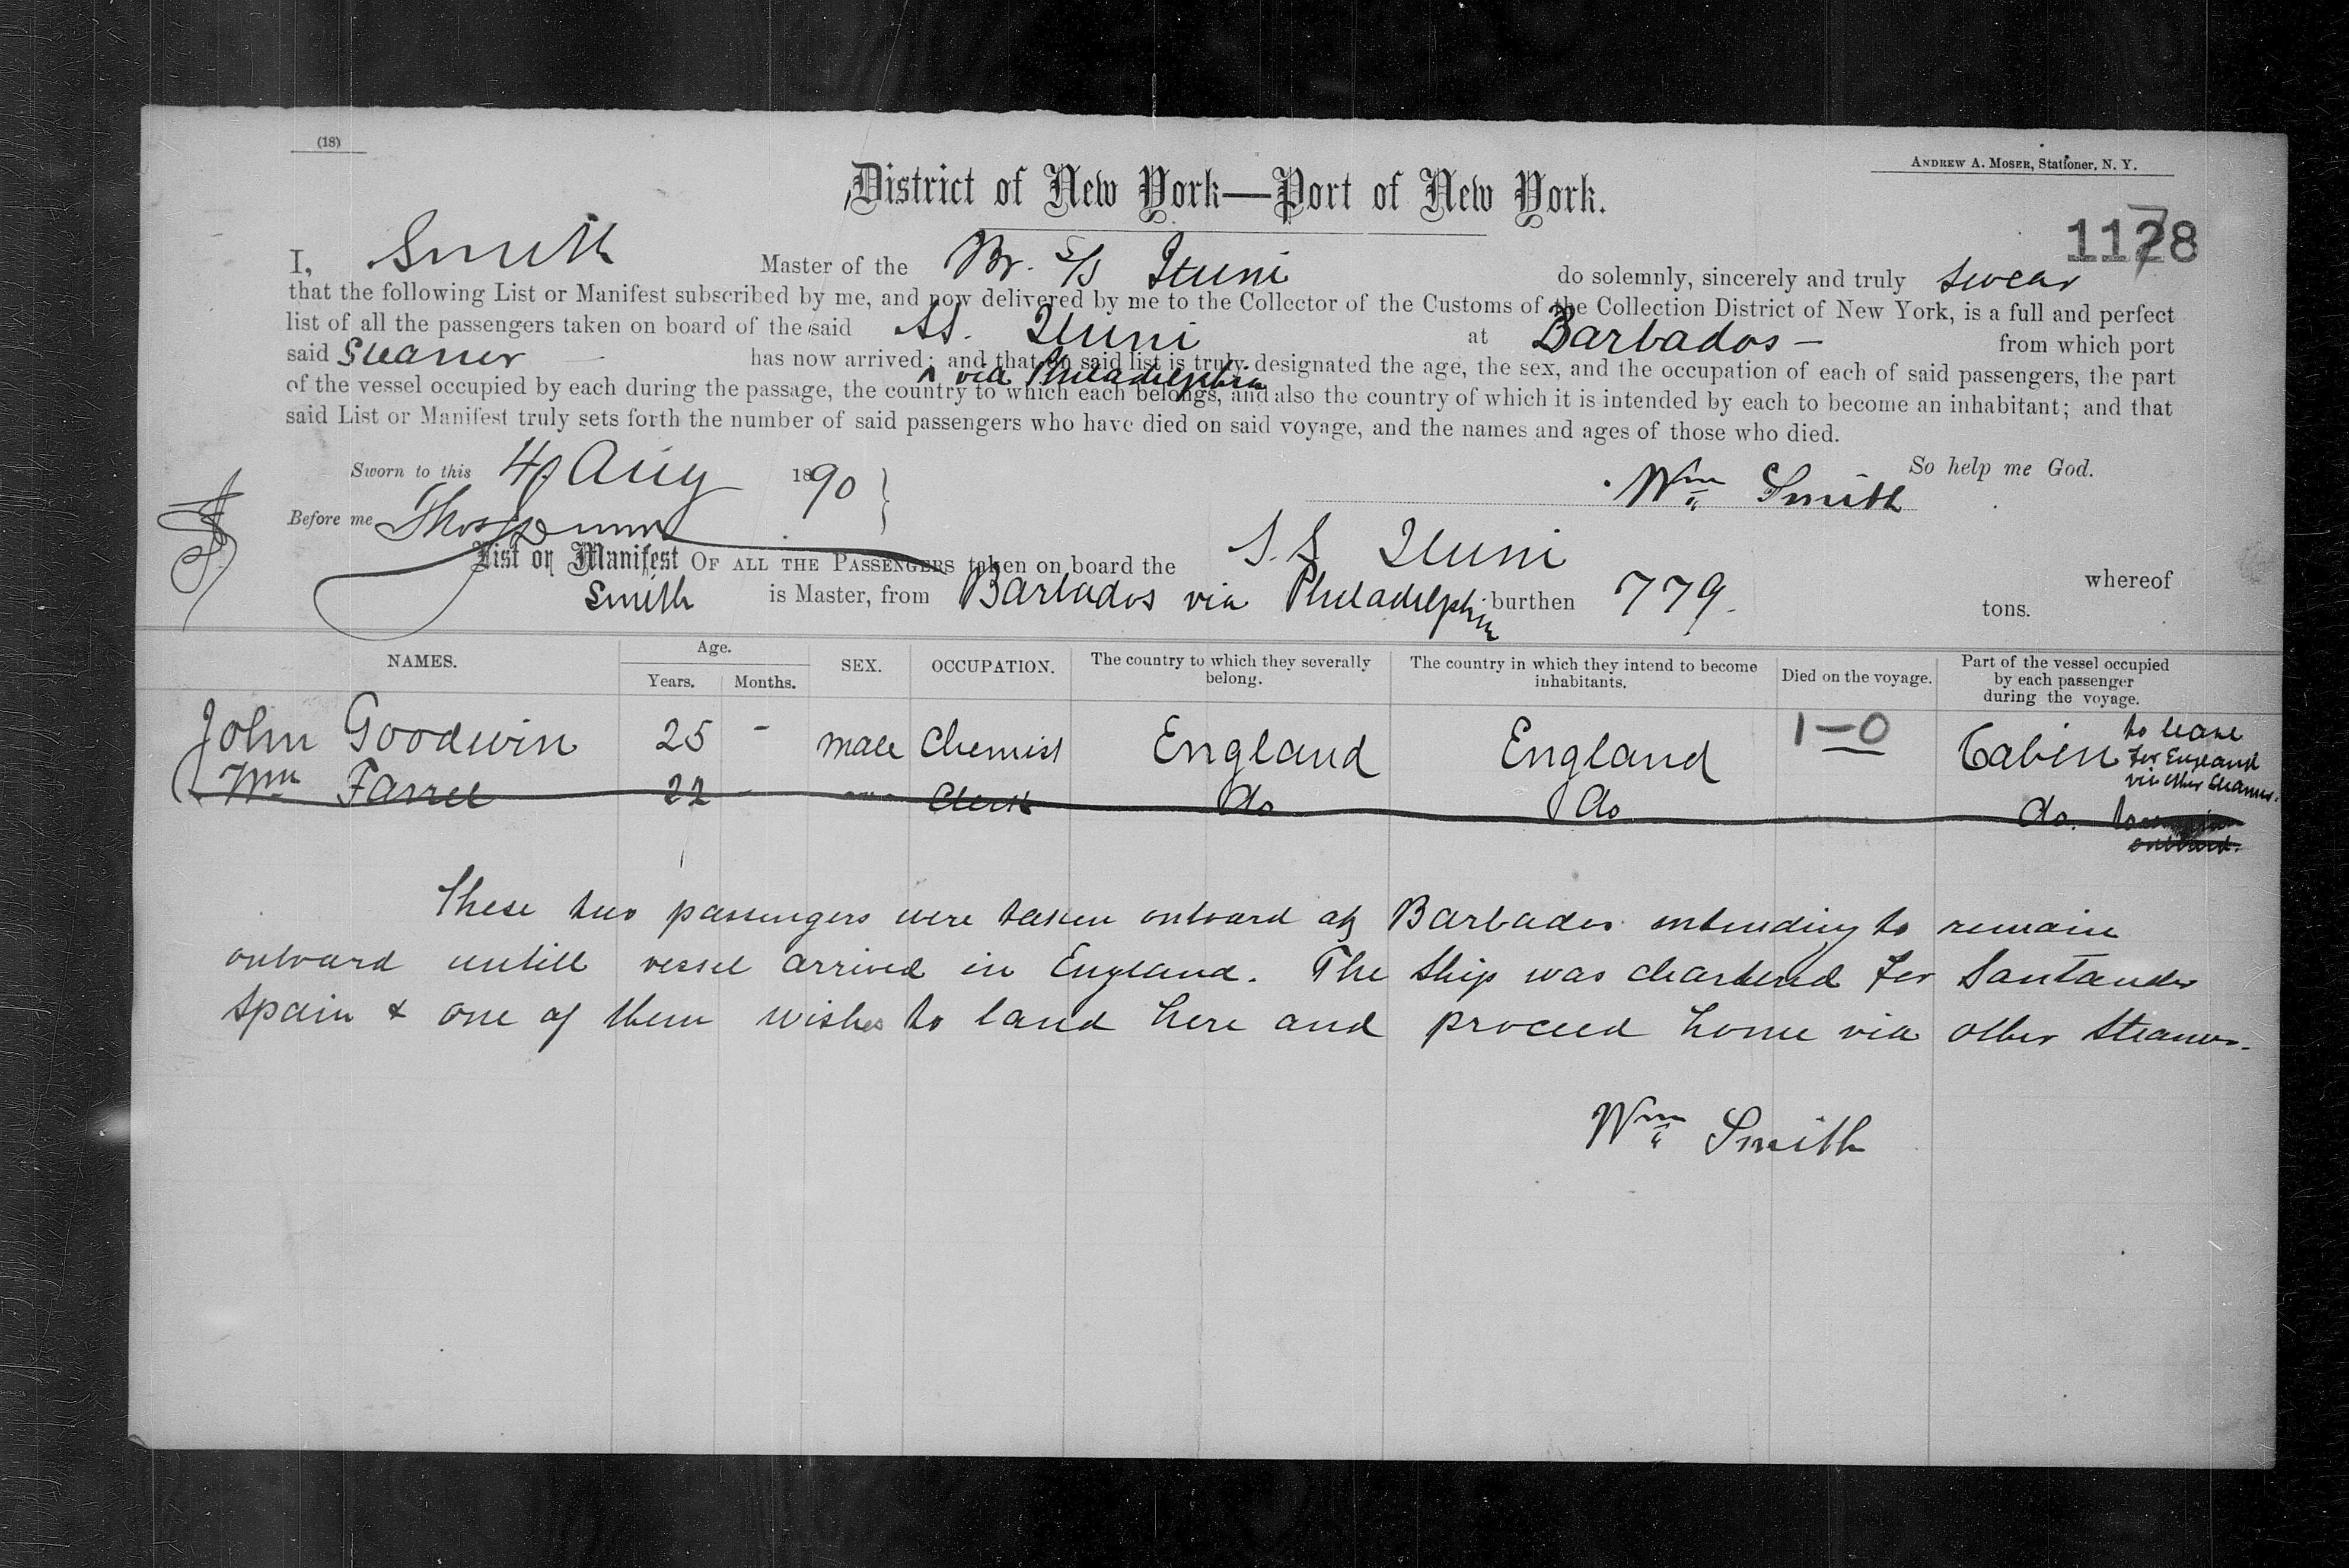 (18)
ANDREW A. MOSER, Stationer, N. Y.
District of New York—Port of New York.
1178
I, Smith Master of the Br. S/S Ituni do solemnly, sincerely and truly swear
that the following List or Manifest subscribed by me, and now delivered by me to the Collector of the Customs of the Collection District of New York, is a full and perfect
list of all the passengers taken on board of the said SS. Ituni at Barbados — from which port
said Steamer has now arrived; and that on said list is truly designated the age, the sex, and the occupation of each of said passengers, the part
^ via Philadelphia
of the vessel occupied by each during the passage, the country to which each belongs, and also the country of which it is intended by each to become an inhabitant; and that
said List or Manifest truly sets forth the number of said passengers who have died on said voyage, and the names and ages of those who died.
So help me God.
Sworn to this 4 Aug 1890
Wm Smith
Before me Thos
List or Manifest OF ALL THE PASSENGERS taken on board the S.S Ituni whereof
Smith is Master, from Barbados via Philadelphia burthen 779. tons.
NAMES. Age. Years. Months. SEX. OCCUPATION. The country to which they severally belong. The country in which they intend to become inhabitants. Died on the voyage. Part of the vessel occupied by each passenger during the voyage.
John Goodwin 25 - male Chemist England England 1-0 Cabin to leave for England via other Steamer.
Wm Farrel 22 - Clerk do do do. to remain onboard.
These two passengers were taken onboard at Barbados intending to remain
onboard untill vessel arrived in England. The Ship was chartered for Santander
Spain & one of them wishes to land here and proceed home via other Steamer.
Wm Smith